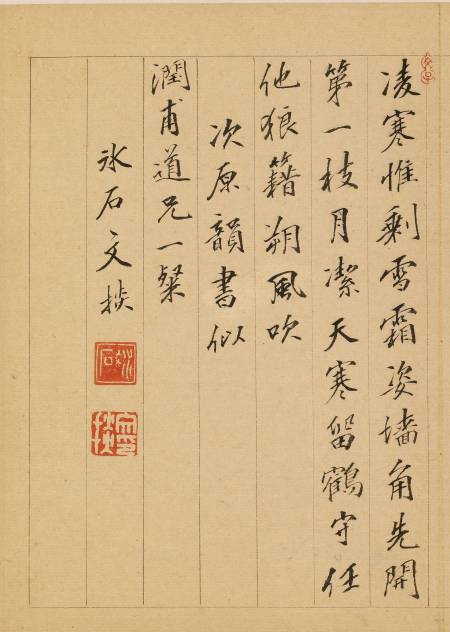 凌寒惟剩雪霜姿墻角先開
第一枝月潔天寒留鶴守任
他狼籍朔風吹
次原韻書似
潤甫道兄一粲
氷石文掞